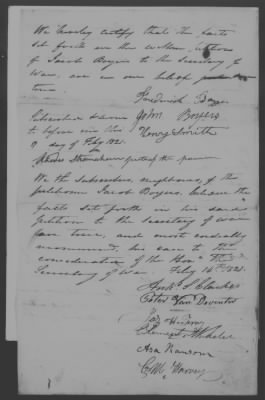 We hereby certify that the facts
set forth in the within petition
of Jacob Boyers to the Secretary of
War, are in our belief
true
Boyer
Subscribed & sworn John Boyers
to before me this Henry Smith
9 day of Feby 1821
Justice of the peace
We the Subscribers, neighbours of the
petitioner Jacob Boyers, believe the
facts set forth in his said
petition to the Secretary of War
are true, and most cordially
recommend his case to the
consideration of the Hon. the
Secretary of War. Feby 16th 1821.
S Clarke
Peter Van Deventer
Asa Ransom
Harvey